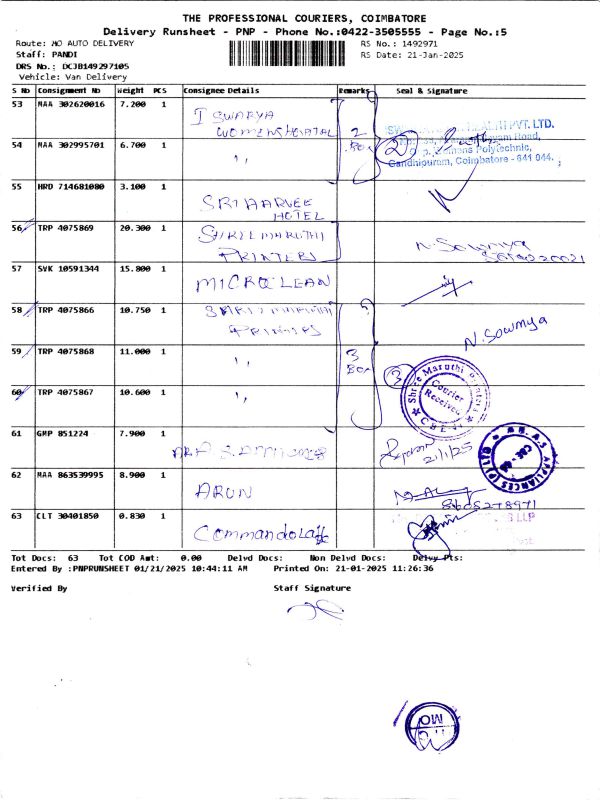 THE PROFESSIONAL COURIERS, COIMBATORE
Delivery Runsheet - PNP - Phone No.:0422-3505555 - Page No.:5
Route: MO AUTO DELIVERY
RS No.: 1492971
Staff: PANDI
RS Date: 21-Jan-2025
DRS No.: DCJB149297105
Vehicle: Van Delivery
S No Consignment No Weight PCS Consignee Details Remarks Seal & Signature
53 MAA 302620016 7.200 1 ISWARYA
WOMENS HOSPITAL
2
Box
PVT. LTD.
Road,
Polytechnic,
Gandhipuram, Coimbatore - 641 044.
54 MAA 302995701 6.700 1 ,,
55 HRD 714681080 3.100 1 SRI AARVEE
HOTEL
56 TRP 4075869 20.300 1 SHREE MARUTHI
PRINTERS
N. Sowmya
57 SVK 10591344 15.800 1 MICROCLEAN
58 TRP 4075866 10.750 1 SHREE MARUTHI
PRINTERS
N. Sowmya
59 TRP 4075868 11.000 1 ,,
3
Box
3
Shree Maruthi Printers
Courier
Received
CBE
60 TRP 4075867 10.600 1 ,,
61 GMP 851224 7.900 1
21/1/25
APPLIANCES
62 MAA 863539995 8.900 1 ARUN
8608278971
63 CLT 30401850 0.830 1 Commando
LLP
Tot Docs: 63 Tot COD Amt: 0.00 Delvd Docs: Non Delvd Docs: Delvy Pts:
Entered By :PNPRUNSHEET 01/21/2025 10:44:11 AM Printed On: 21-01-2025 11:26:36
Verified By Staff Signature
MO